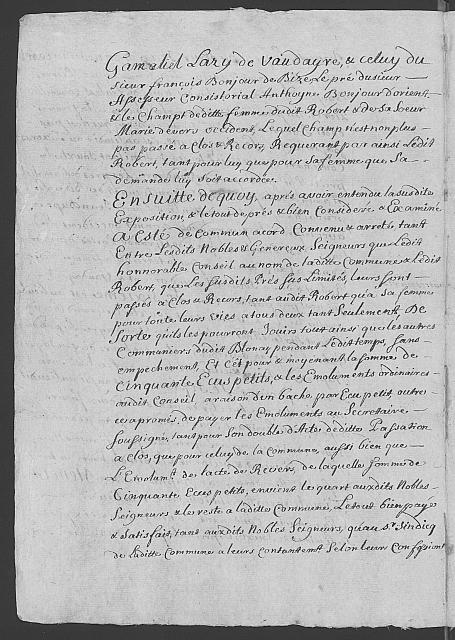 Gamaliel Lazy de Vaudayre, & celuy du
sieur françois Bonjour de Bize, Le pré du sieur
Assesseur Consistorial Anthoyne Bonjour d'orient
& le Champt de ditte femme dudit Robert & de Sa Soeur
Marie devers occident, Lequel Champ n'est non plus
pas passé à Clos & Recors, Requerant par ainsi Ledit
Robert, tant pour luy que pour sa femme que Sa
demande luy soit accordée.
Ensuitte de quoy, aprés avoir entendu la susdite
Exposition, & le tout de prés & bien Consideré & Examiné
A Esté de Commun acord Convenu & arresté, tant
Entre Lesdits Nobles & Genereux Seigneurs que Ledit
honnorable Conseil au nom de laditte Commune & Ledit
Robert, que Les susdits Prés sus Limités, leurs sont
passés à Clos & Recors, tant audit Robert qu'à Sa femme
pour toute leurs vies a tous deux tant Seulement, De
Sorte quils les pourront Jouirs tout ainsi que les autres
Communiers dudit Blonay pendant Ledit temps, sans
empechement, Et Cet pour & moyenant la somme de
Cinquante Ecus petits, & les Emoluments ordinaires
audit Conseil, a raison d'un bache par Ecu petit, outre
ce a promis, de payer les Emoluments au Secretaire
soussigné, tant pour Son double d'Acte de ditte Passation
à Clos, que pour celuy de la Commune, aussi bien que
L'Emolumt. de lacte de Reviers, de laquelle somme de
Cinquante Ecus petits, envient le quart auxdits Nobles
Seigneurs & le reste a laditte Commune, Le tout bien payé
& Satisfait, tant auxdits Nobles Seigneurs, qu'au sr. Sindicq
de laditte Commune a leurs Contantemt Selon leurs Confessions